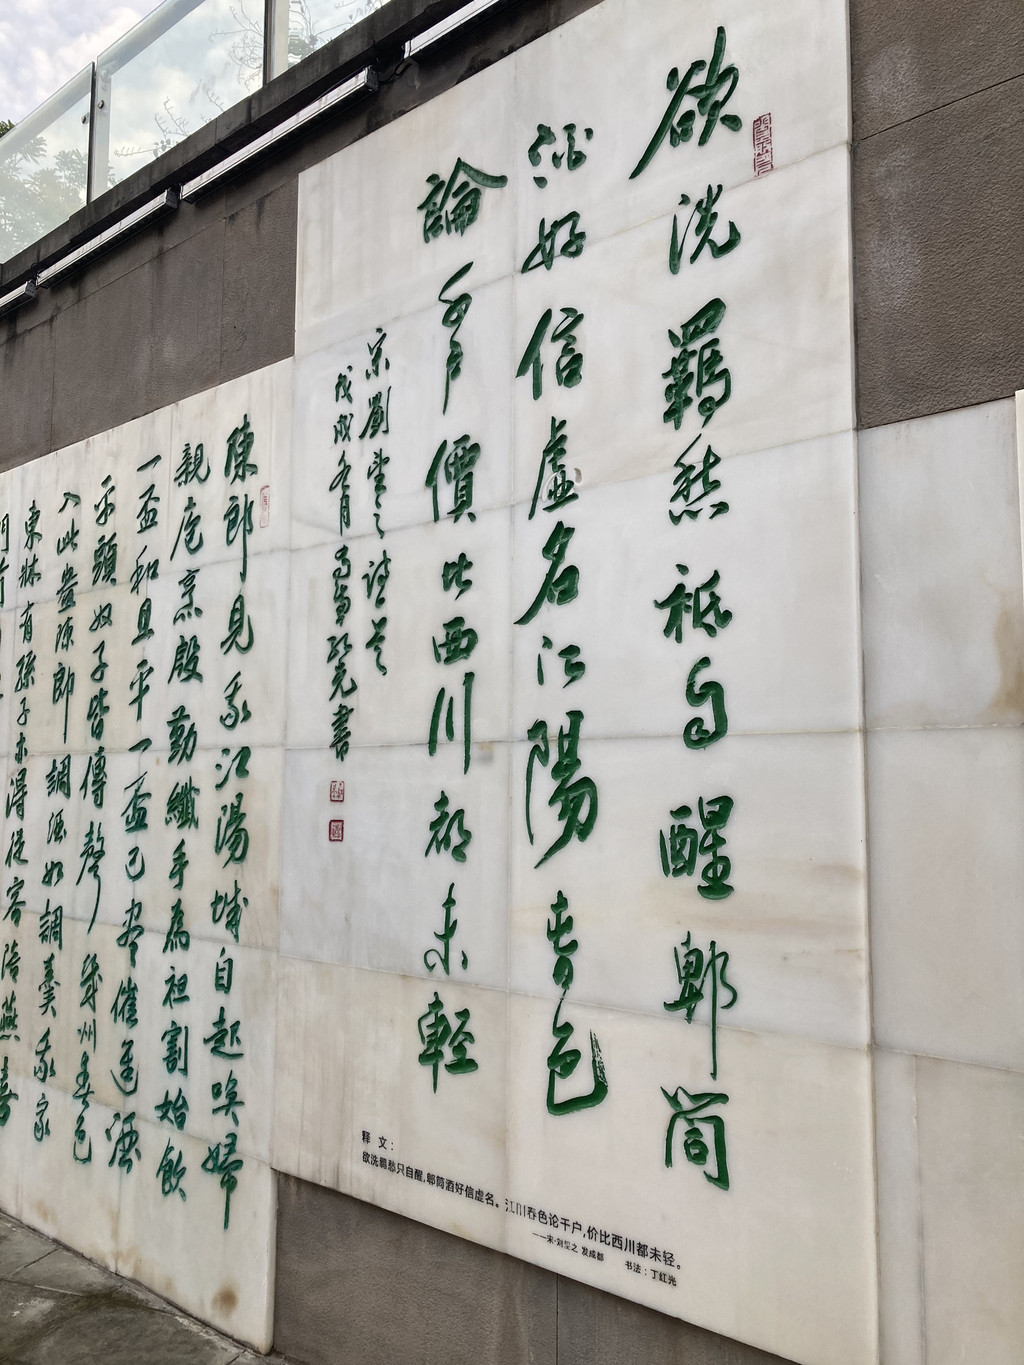 欲洗羈愁祗自醒郫筒
酒好信虛名江陽春色
論千戶價比西川都未輕
宋劉望之詩
戊戌冬月 書
释文：
欲洗羁愁只自醒,郫筒酒好信虚名。江阳春色论千户,价比西川都未轻。
——宋·刘望之 发成都 书法：丁红光
陳郎見我江陽城自起喚婦
親庖烹殷勤纖手為袒割始飲
一盃和且平一盃已盡催進酒
平頭奴子皆傳聲幾州春色
入此盎陳郎調酒如調羹我家
東牀有孫子亦得從容陪燕喜
門前